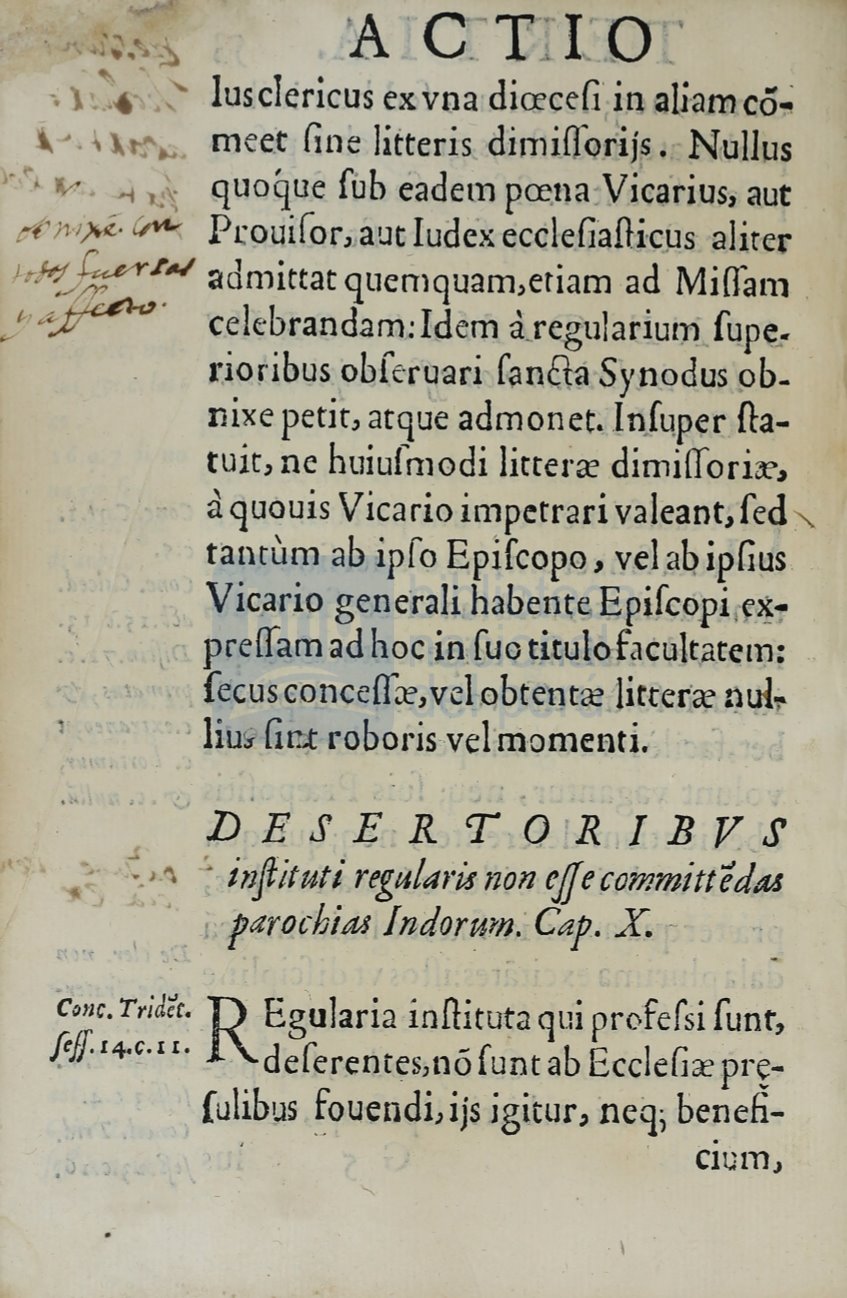 ACTIO
lus clericus ex vna diœceſi in aliam cō-
meet ſine litteris dimiſſorijs. Nullus
quoq́ue ſub eadem pœna Vicarius, aut
Prouiſor, aut Iudex eccleſiaſticus aliter
admittat quemquam, etiam ad Miſſam
celebrandam: Idem à regularium ſupe-
rioribus obſeruari ſancta Synodus ob-
nixe petit, atque admonet. Inſuper ſta-
tuit, ne huiuſmodi litteræ dimiſſoriæ,
à quouis Vicario impetrari valeant, ſed
tantùm ab ipſo Epiſcopo, vel ab ipſius
Vicario generali habente Epiſcopi ex-
preſſam ad hoc in ſuo titulo facultatem:
ſecus conceſſæ, vel obtentæ litteræ nul-
lius ſint roboris vel momenti.
obnixè. con
todas fuersas
y affecto.
DESERTORIBVS
inſtituti regularis non eſſe committēdas
parochias Indorum. Cap. X.
Conc. Tridēt.
ſeſſ. 14. c. 11.
REgularia inſtituta qui profeſsi ſunt,
deſerentes, nō ſunt ab Eccleſiæ prę-
ſulibus fouendi, ijs igitur, neq; benefi-
cium,